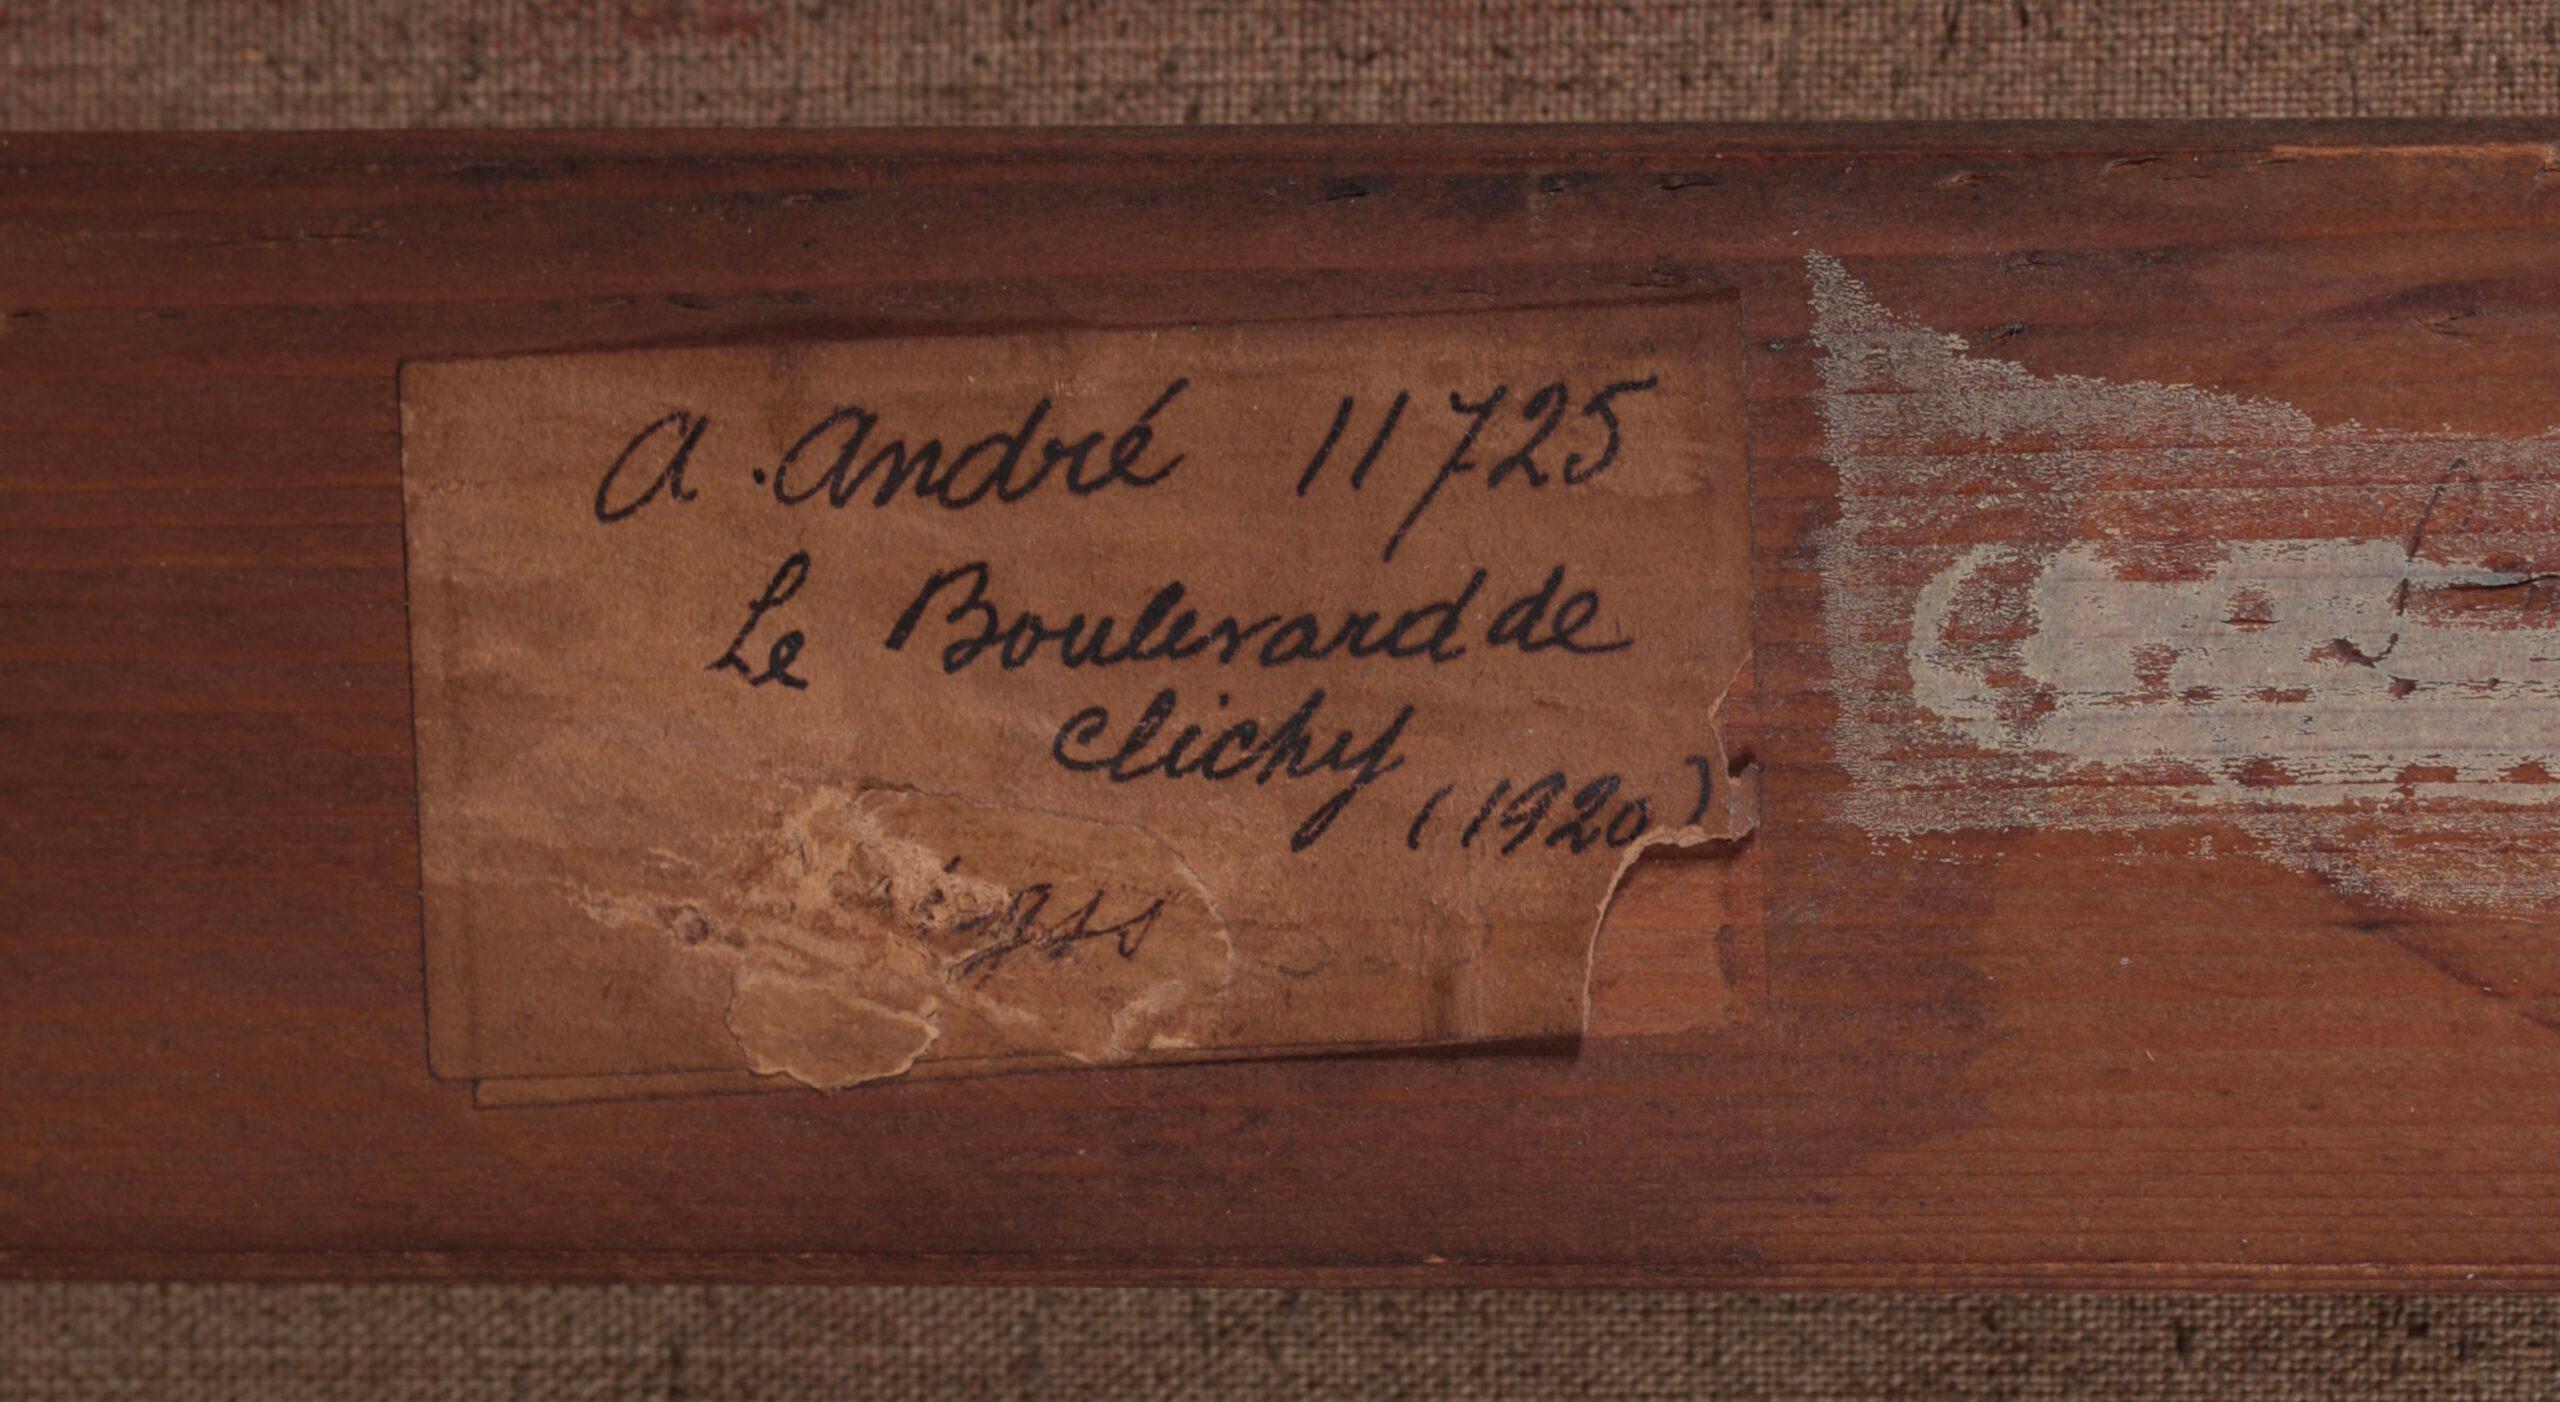 A. André 11725
Le Boulevard de
Clichy
(1920)